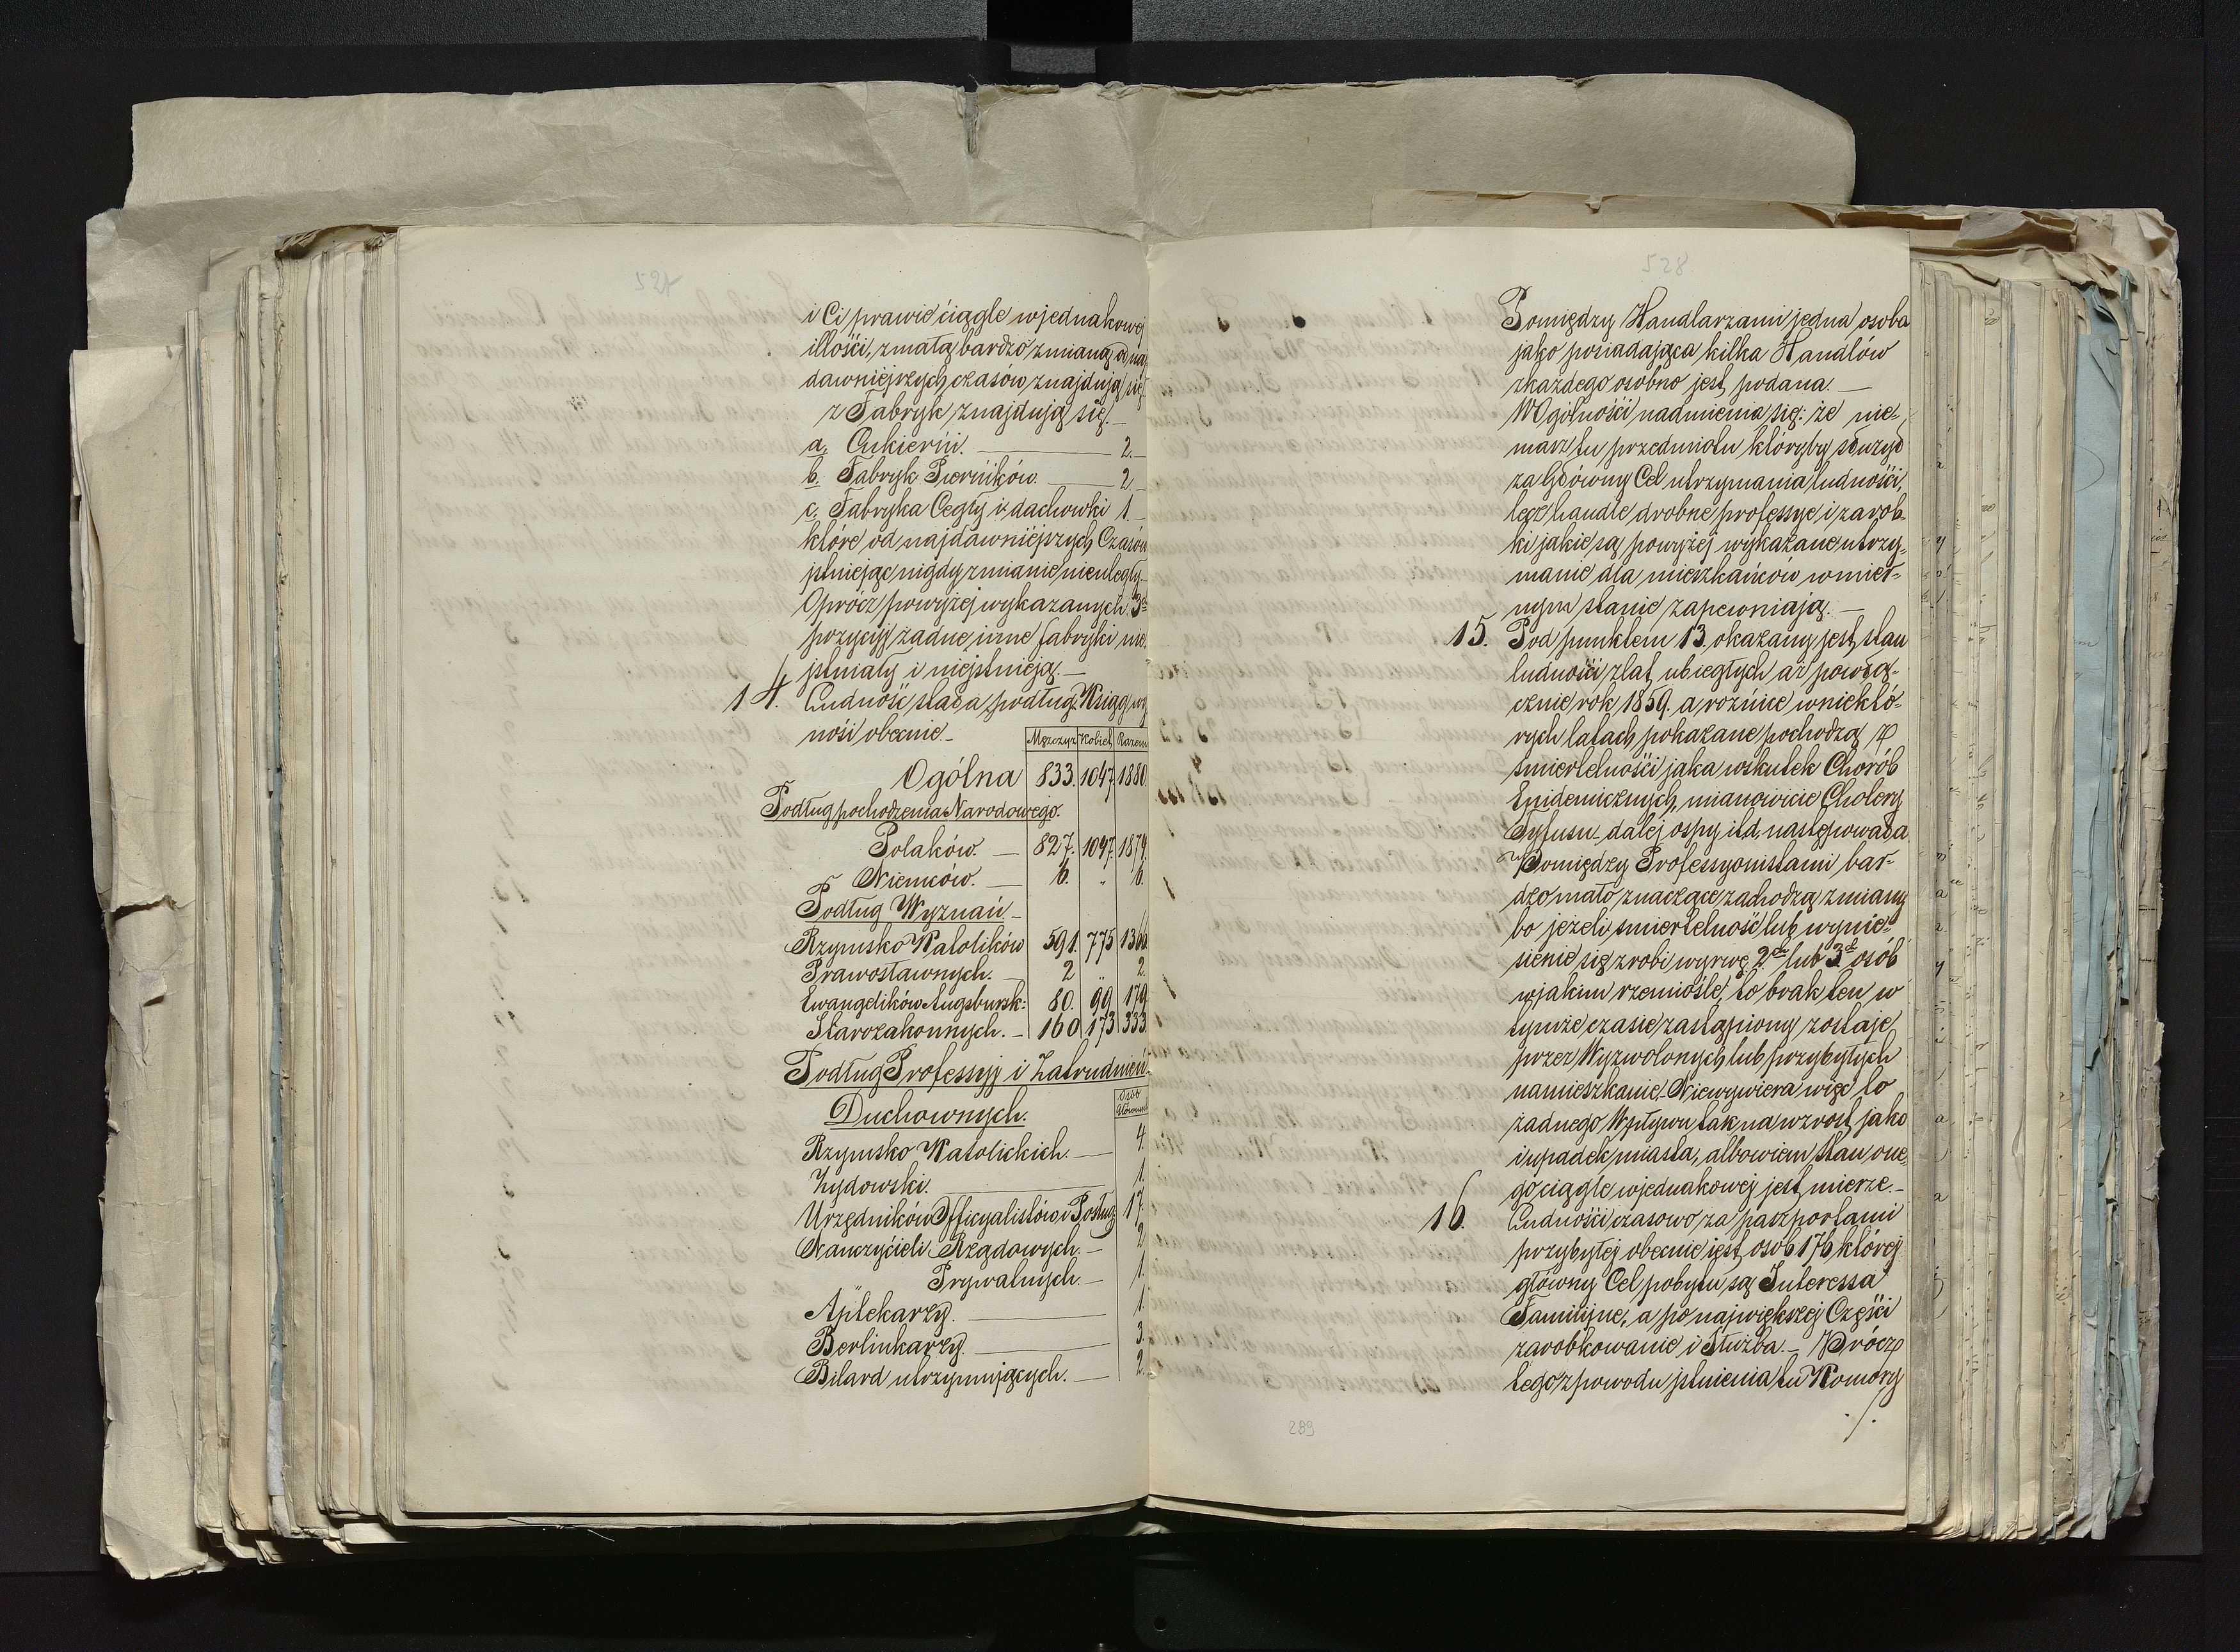 527
i Ci prawie ciągle w jednakowej
illości, z małą bardzo zmianą od naj
dawniejszych czasów znajdują się
z Fabryk znajdują się. —
a. Cukierni. — 2. —
b. Fabryk Pierników. — 2 —
c. Fabryka Cegły i dachowki 1. —
które od najdawniejszych Czasów
istniejąc nigdy zmianie nieuległy. —
Oprócz powyżej wykazanych 3ch
pozycij żadne inne fabryki nie
istniały i nieistnieją. —
14. Ludność stała podług Ksiąg wy
nosi obecnie. — Mężczyz Kobiet Razem
Ogólna 833. 1047. 1880.
Podług pochodzenia Narodowego.
Polaków. — 827. 1047. 1874.
Niemców. — 6. „ 6.
Podług Wyznań —
Rzymsko Katolików 591. 775 1366
Prawosławnych. — 2 „ 2.
Ewangelików Augsbursk: 80. 99 179
Starozakonnych. — 160 173 333.
Podług Professyj i Zatrudnień.
Duchownych. Osób
Rzymsko Katolickich. — 4.
Żydowski. — 1.
Urzędników Officyalistów i Posług 17.
Nauczycieli Rządowych. — 2
„ Prywatnych. — 1.
Aptekarzy. — 1.
Berlinkarzy. — 3.
Bilard utrzymujących. — 2.
528
Pomiędzy Handlarzami jedna osoba
jako posiadająca kilka Handlów
z każdego osobno jest podana. —
W Ogólności nadmienia się: że nie-
masz tu przedmiotu któryby służył
za Główny Cel utrzymania ludności,
lecz handle drobne professye i zarob-
ki jakie są powyżej wykazane utrzy-
manie dla mieszkańców w mier-
nym stanie zapewniają. —
15. Pod punktem 13. okazany jest stan
ludności z lat ubiegłych aż po włą-
cznie rok 1859. a róźnice w niektó-
rych latach pokazane pochodzą z
śmiertelności jaka wskutek Chorób
Epidemicznych, mianowicie Cholery
Tyfusu — dalej ospy itd. następowała
Pomiędzy Professyonistami bar-
dzo mało znaczące zachodzą zmiany
bo jeżeli śmiertelność lub wynie-
sienie się zrobi wyrwę 2ch lub 3ch osób
w jakim rzemiośle, to brak ten w
tymże czasie zastąpiony zostaje
przez Wyzwolonych lub przybyłych
na mieszkanie. Niewywiera więc to
żadnego Wpływu tak na wzrost jako
i upadek miasta, albowiem stan one-
go ciągle w jednakowej jest mierze. —
16. Ludności czasowo za paszportami
przybyłej obecnie jest osób 176 której
główny Cel pobytu są Interessa
Familijne, a po największej Części
zarobkowanie i Służba. — Prócz
tego z powodu istnienia tu Komory
./.
289